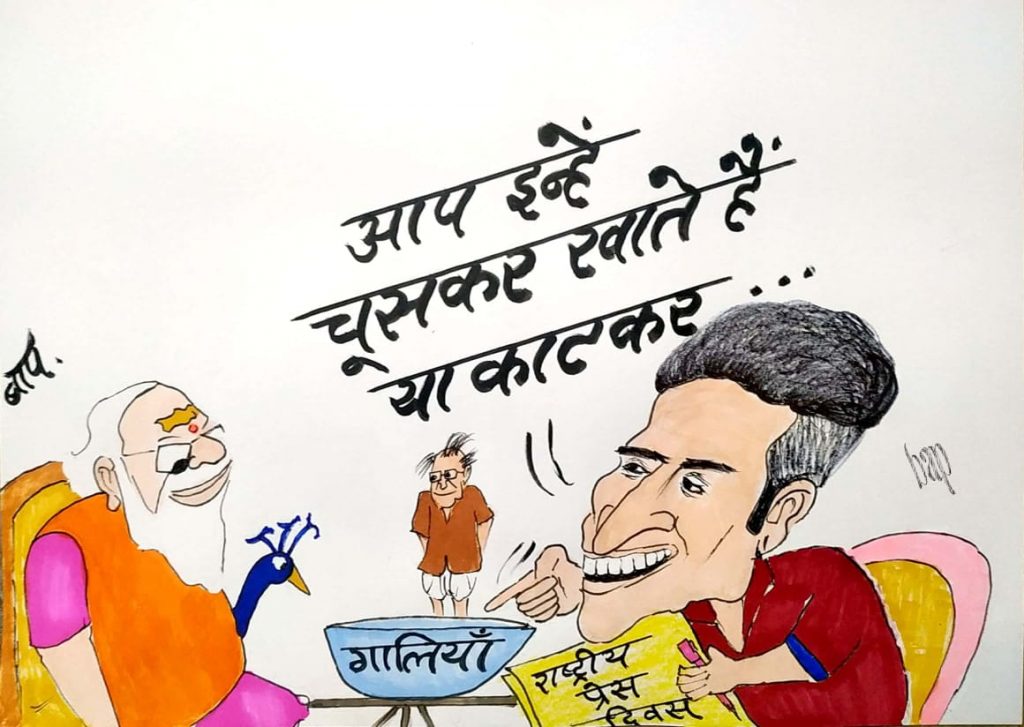 आप इन्हें
चूसकर खाते हैं
या काटकर ...
बाप.
bap
गालियाँ
राष्ट्रीय
प्रेस
दिवस